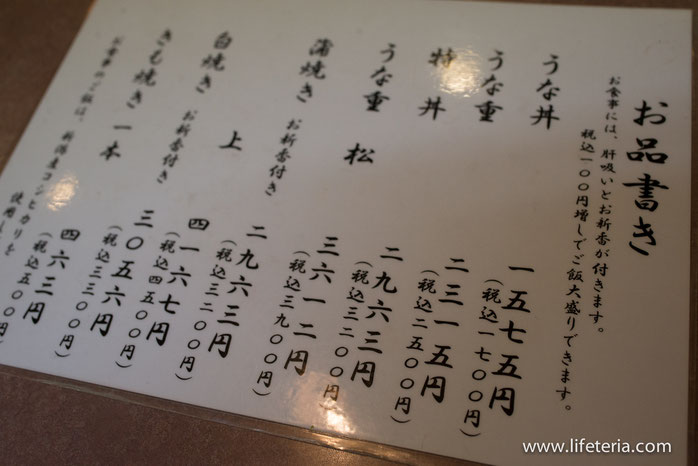 お品書き
お食事には、肝吸いとお新香が付きます。
税込一〇〇円増しでご飯大盛りできます。
うな丼 一五七五円
（税込一七〇〇円）
うな重 二三一五円
（税込二五〇〇円）
特丼 二九六三円
（税込三二〇〇円）
うな重 松 三六一二円
（税込三九〇〇円）
蒲焼き お新香付き 二九六三円
（税込三二〇〇円）
上 四一六七円
（税込四五〇〇円）
白焼き お新香付き 三〇五六円
（税込三三〇〇円）
きも焼き 一本 四六三円
（税込五〇〇円
お食事のご飯は、新潟産コシヒカリを使用し
www.lifeteria.com